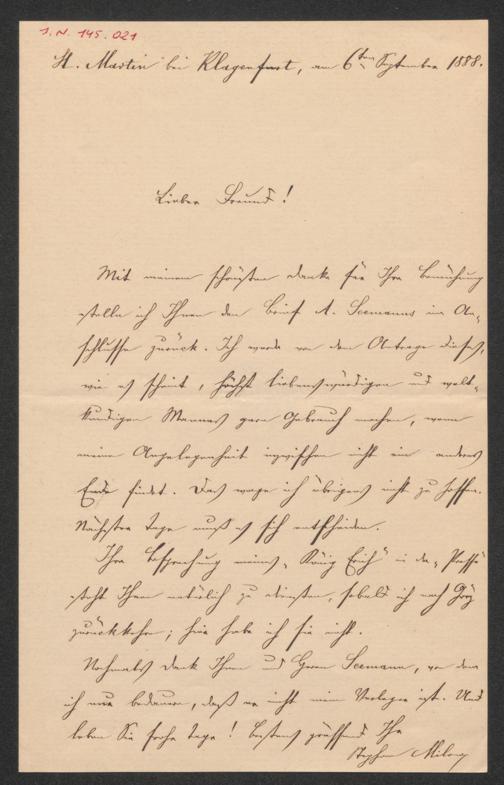 J.N. 145.021
St. Martin bei Klagenfurt, am 6ten September 1888.
Lieber Freund!
Mit meinem schönsten Danke für Ihre Bemühung
stelle ich Ihnen den Brief A. Seemanns im An-
schlusse zurück. Ich werde von dem Antrage dieses,
wie es scheint, höchst liebenswürdigen und welt-
kundigen Mannes gern Gebrauch machen, wenn
meine Angelegenheit inzwischen nicht ein anderes
Ende findet. Das wage ich übrigens nicht zu hoffen.
Nächster Tage muß es sich entscheiden.
Ihre Besprechung meines „König Erich" in der „Presse"
steht Ihnen natürlich zu Diensten, sobald ich nach Görz
zurückkehre; hier habe ich sie nicht.
Nochmals Dank Ihnen und Herrn Seemann, von dem
ich nur bedaure, daß er nicht mein Verleger ist. Und
leben Sie frohe Tage! Bestens grüßend Ihr
Stephan Milow